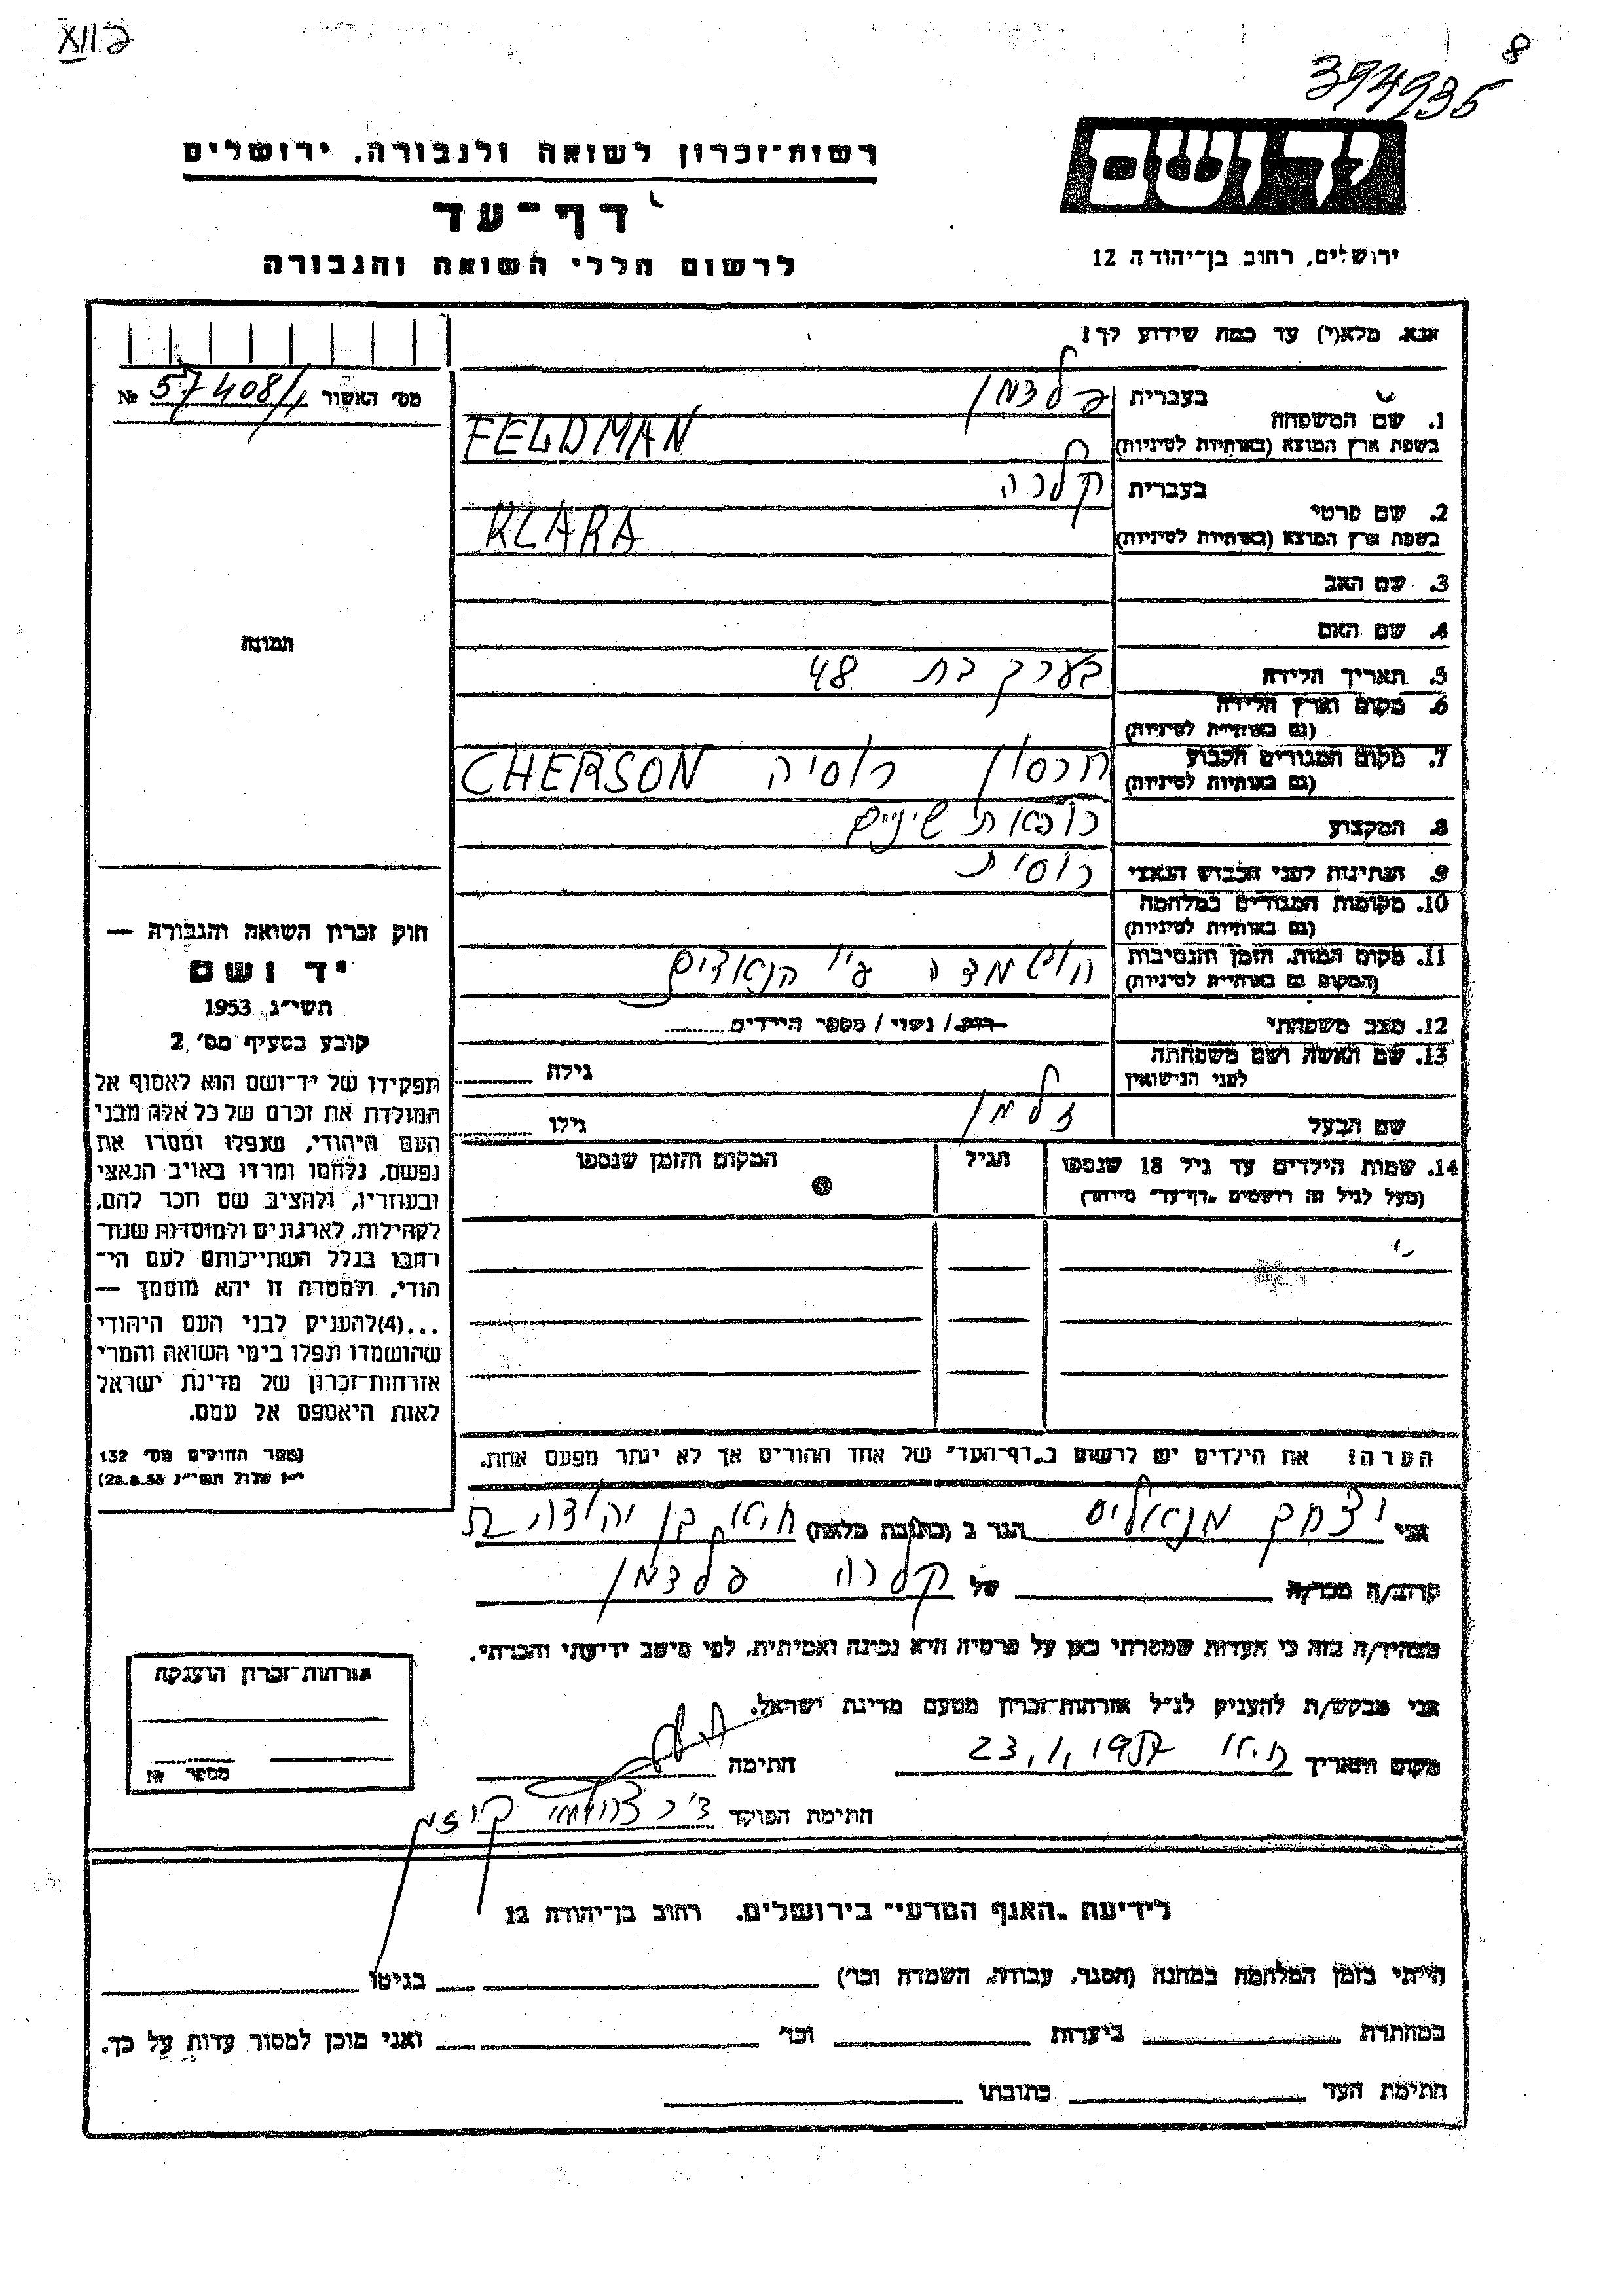 ב XII
8
394935
יד ושם
ירושלים, רחוב בן־יהודה 12
רשות־זכרון לשואה ולגבורה, ירושלים
דף־עד
לרשום חללי השואה והגבורה
אנא, מלא(י) עד כמה שידוע לך!
מס' האשור 57408/1 №
תמונה
1. שם המשפחה
בעברית פלדמן
בשפת ארץ המוצא (באותיות לטיניות) FELDMAN
2. שם פרטי
בעברית קלרה
בשפת ארץ המוצא (באותיות לטיניות) KLARA
3. שם האב
4. שם האם
5. תאריך הלידה בערך בת 48
6. מקום וארץ הלידה
(גם באותיות לטיניות)
7. מקום המגורים הקבוע חרסון רוסיה CHERSON
(גם באותיות לטיניות)
8. המקצוע רופאת שיניים
9. הנתינות לפני הכבוש הנאצי רוסית
10. מקומות המגורים במלחמה
(גם באותיות לטיניות)
11. מקום המות, הזמן והנסיבות הושמדה ע"י הנאצים
(המקום גם באותיות לטיניות)
12. מצב משפחתי רווק / נשוי / מספר הילדים
13. שם האשה ושם משפחתה
לפני הנישואין
גילה
שם הבעל זלמן גילו
14. שמות הילדים עד גיל 18 שנספו הגיל המקום והזמן שנספו
(מעל לגיל זה רושמים „דף־עד" מיוחד)
הערה: את הילדים יש לרשום ב„דף־העד" של אחד ההורים אך לא יותר מפעם אחת.
חוק זכרון השואה והגבורה —
יד ושם
תשי"ג, 1953
קובע בסעיף מס' 2
תפקידו של יד־ושם הוא לאסוף אל
המולדת את זכרם של כל אלה מבני
העם היהודי, שנפלו ומסרו את
נפשם, נלחמו ומרדו באויב הנאצי
ובעוזריו, ולהציב שם וזכר להם,
לקהילות, לארגונים ולמוסדות שנח־
רבו בגלל השתייכותם לעם הי־
הודי, ולמטרה זו יהא מוסמך —
...(4) להעניק לבני העם היהודי
שהושמדו ונפלו בימי השואה והמרי
אזרחות־זכרון של מדינת ישראל
לאות היאספם אל עמם.
(ספר החוקים מס' 132
י"ז אלול תשי"ג 28.8.53)
אני יצחק הגר ב (כתובת מלאה) בן יהודה
קרוב/ה מכר/ה של קלרה פלדמן
מצהיר/ה בזה כי העדות שמסרתי כאן על פרטיה היא נכונה ואמיתית, לפי מיטב ידיעתי והכרתי.
אני מבקש/ת להעניק לנ"ל אזרחות־זכרון מטעם מדינת ישראל.
מקום ותאריך 23.1.1957 חתימה
חתימת הפוקד ד"ר
אזרחות־זכרון הוענקה
מספר №
לידיעת „האגף המדעי" בירושלים, רחוב בן־יהודה 12
הייתי בזמן המלחמה במחנה (הסגר, עבודה, השמדה וכו') בגיטו
במחתרת ביערות וכו' ואני מוכן למסור עדות על כך.
חתימת העד כתובתו